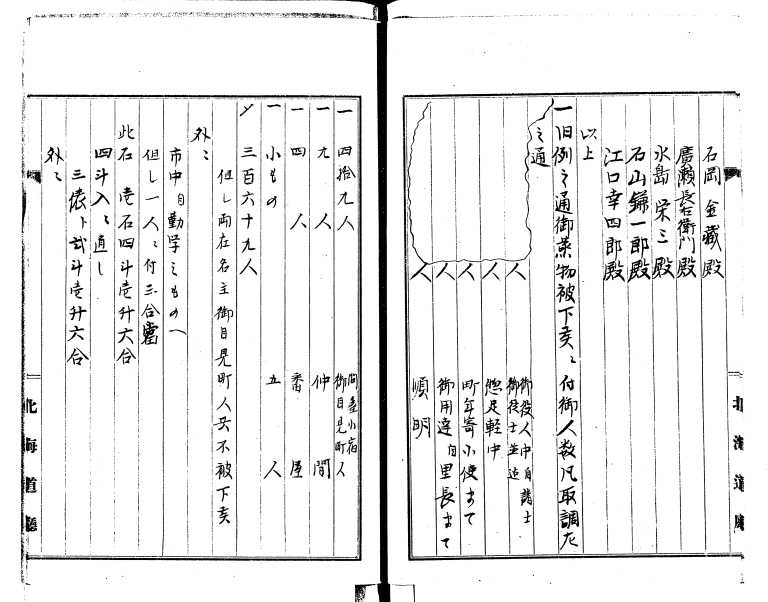 石岡金藏殿
廣瀬長右衛門殿
水島栄三殿
石山鎌一郎殿
江口幸四郎殿
以上
一旧例之通御薬物被下候ニ付御人数凡取調左
之通
人 御役人中自諸士
御徒士並迄
人 惣足軽中
人 町年寄小使まて
人 御用達自里長まて
人 順明
一四拾九人 問屋小宿
御目見町人
一九人 仲間
一四人 番屋
一小もの 五人
〆三百六十九人
但し両在名主御目見町人共不被下候
外ニ
市中自勤学之もの八
但し一人ニ付三合
此石壱石四斗壱升六合
四斗入ニ直し
三俵ト弐斗壱升六合
外ニ
北海道廳
北海道廳